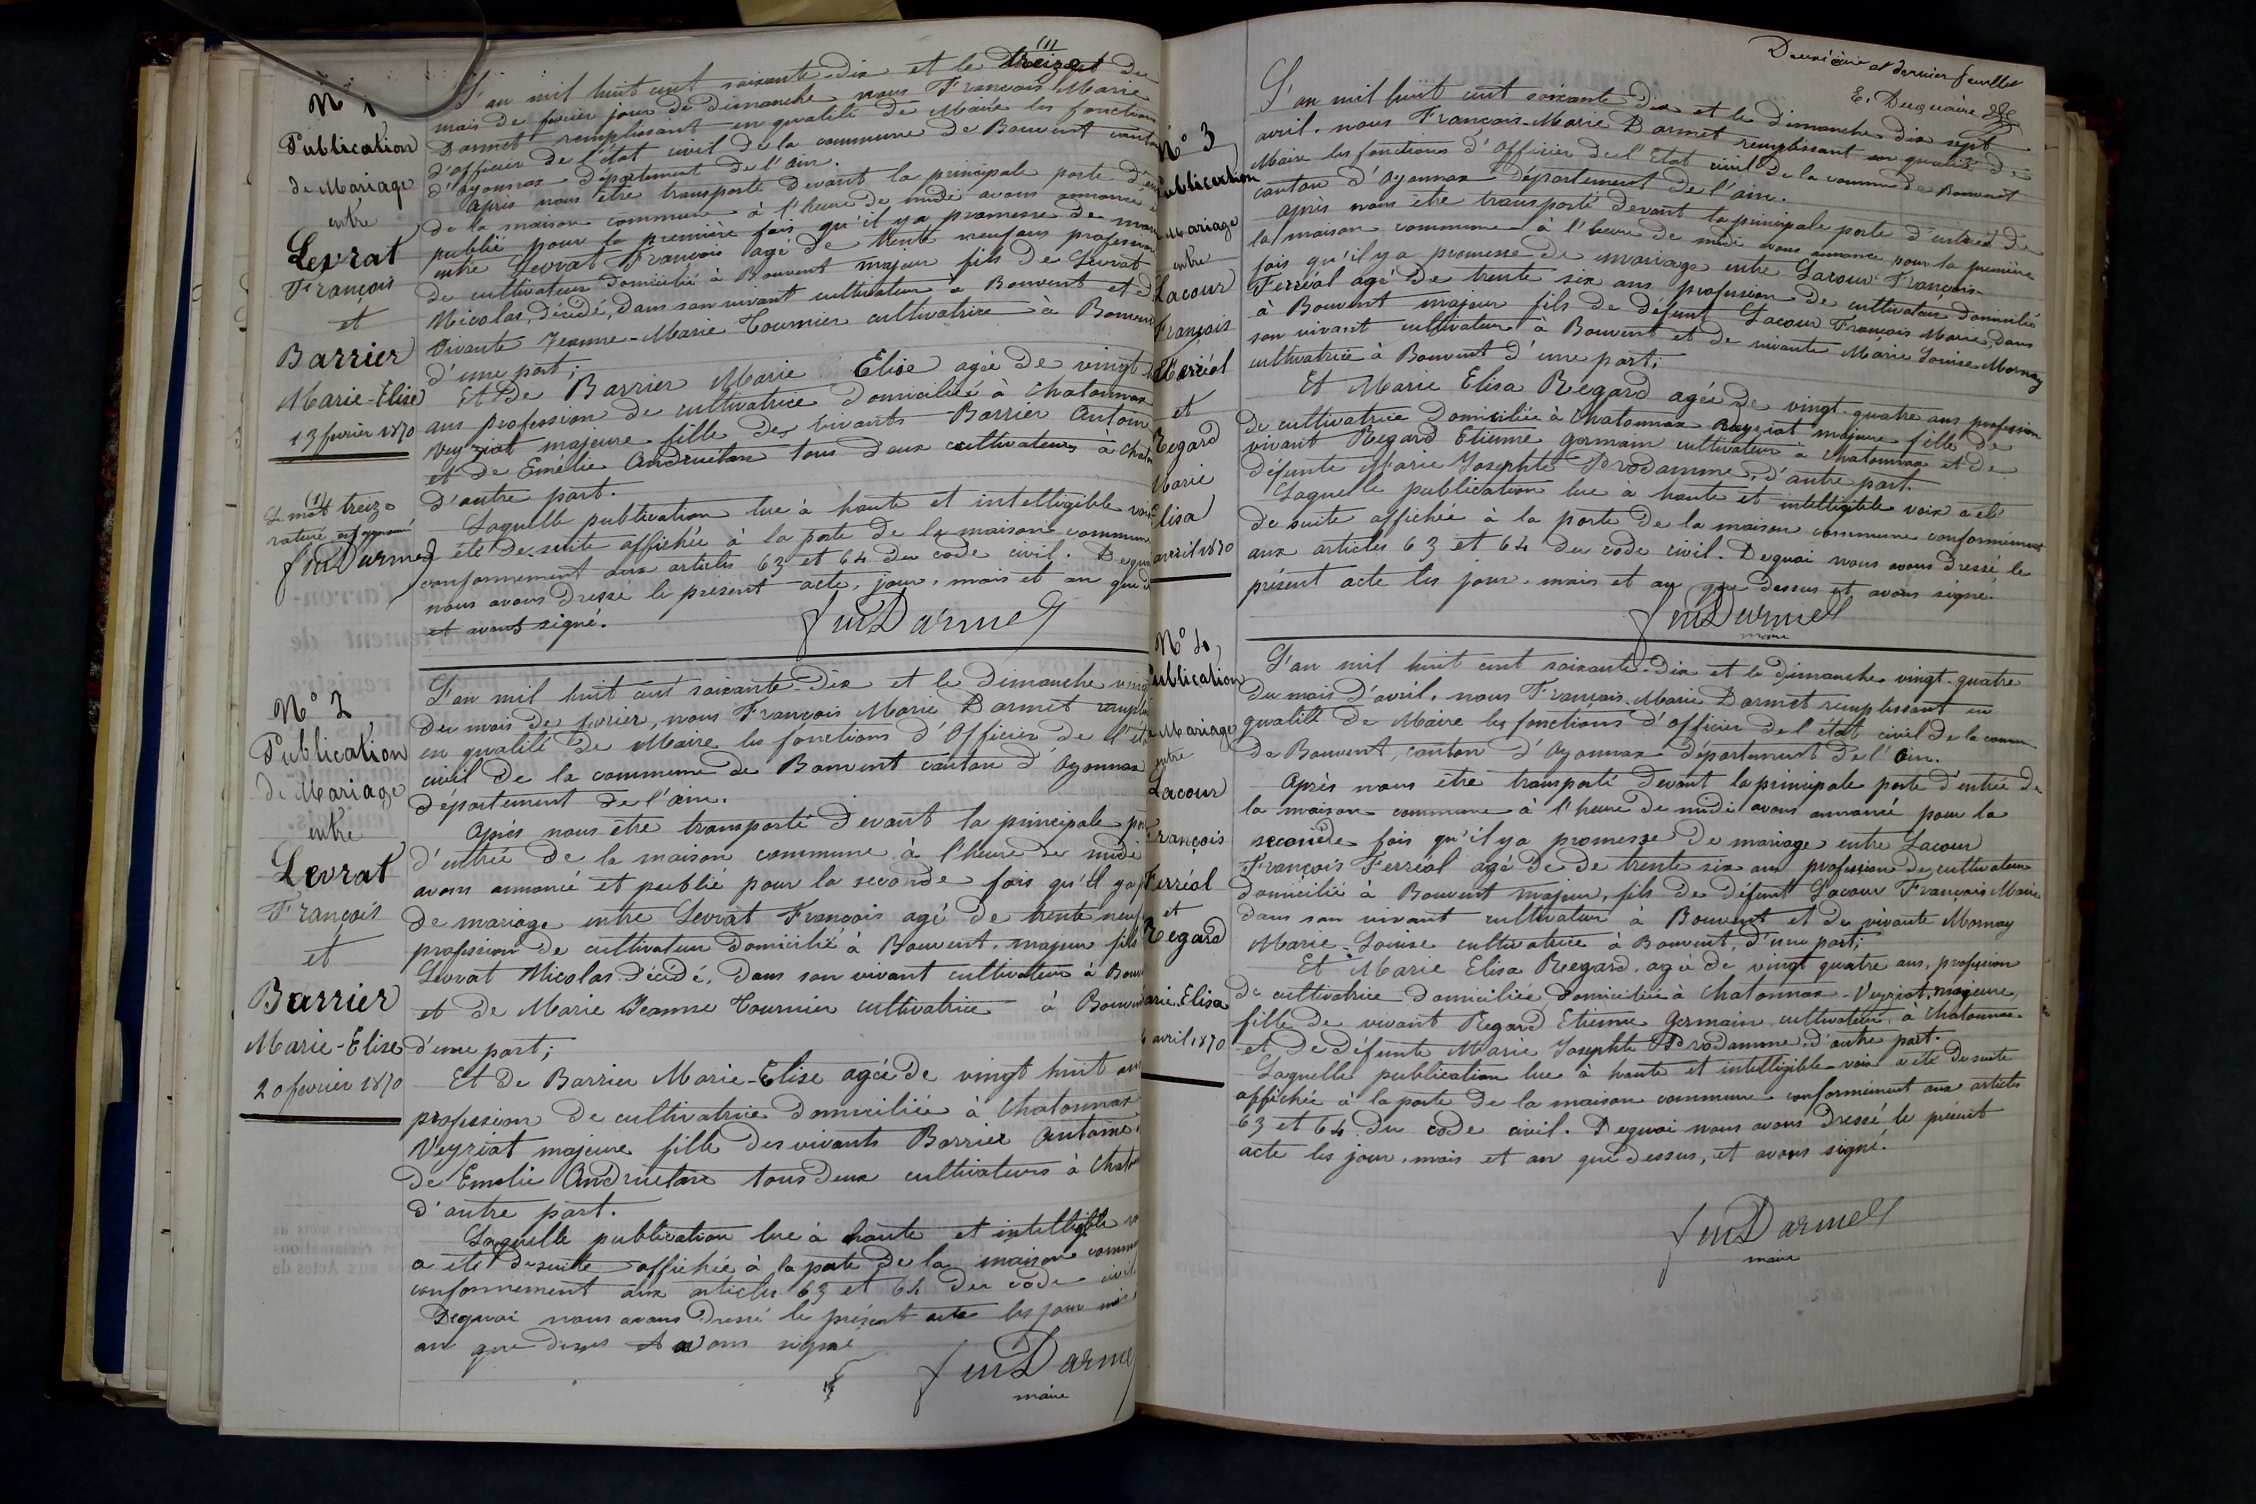 N° 1
Publication
de Mariage
entre
Levrat
François
et
Barrier
Marie-Elise
13 fevrier 1870
(1)
Le mot treize
raturé est approuvé
fm Darmet
(1)
L'an mil huit cent soixante-dix et le treize du
mois de fevrier jour de dimanche nous François Marie
Darmet remplissant en qualité de Maire les fonctions
d'officier de l'état civil de la commune de Bouvent canton
d'Oyonnax département de l'ain.
Après nous être transporté devant la principale porte d'en
de la maison commune à l'heure de midi avons annoncé
publié pour la première fois qu'il y a promesse de mari
entre Levrat François agé de trente neuf ans profession
de cultivateur domicilié à Bouvent majeur fils de Levrat
Nicolas, décédé, dans son vivant cultivateur à Bouvent et de
vivante Jeanne-Marie Tournier cultivatrice à Bouvent
d'une part;
Et de Barrier Marie Elise agée de vingt
ans profession de cultivatrice domiciliée à Chatonnax
Veyriat majeure fille des vivants Barrier Antoine
et de Emélie Andruétan tous deux cultivateurs à Chaton
d'autre part.
Laquelle publication lue à haute et intelligible voix
été de suite affichée à la porte de la maison commune
conformement aux articles 63 et 64 du code civil. Dequoi
nous avons dressé le présent acte, jour, mois et an que d
et avons signé.
fm Darmet
N° 2
Publication
de Mariage
entre
Levrat
François
et
Barrier
Marie-Elise
20 fevrier 1870
L'an mil huit cent soixante-dix et le dimanche vingt
du mois de fevrier, nous François Marie Darmet rempli
en qualité de Maire les fonctions d'Officier de l'état
civil de la commune de Bouvent canton d'Oyonnax
département de l'ain.
Après nous être transporté devant la principale por
d'entrée de la maison commune à l'heure de midi
avons annoncé et publié pour la seconde fois qu'il y a
de mariage entre Levrat François agé de trente neuf
profession de cultivateur domicilié à Bouvent, majeur fils
Levrat Nicolas décédé, dans son vivant cultivateur à Bouv
et de Marie Jeanne Tournier cultivatrice à Bouvent
d'une part;
Et de Barrier Marie-Elise agée de vingt huit ans
profession de cultivatrice domiciliée à Chatonnax
Veyriat majeure fille des vivants Barrier Antoine
de Emelie Andruétan tous deux cultivateurs à Chaton
d'autre part.
Laquelle publication lue à haute et intelligible vo
a été de suite affichée à la porte de la maison commu
conformement aux articles 63 et 64 du code civil
Dequoi nous avons dressé le présent acte les jour mois
an que dessus et avons signé
fm Darme
maire
Deuxième et dernier feuillet
E. Duquaire
N° 3
Publication
Mariage
entre
Lacour
François
Ferréol
et
Regard
Marie
Elisa
avril 1870
L'an mil huit cent soixante dix et le dimanche dix sept
avril, nous François-Marie Darmet remplissant en qualité de
Maire les fonctions d'Officier de l'Etat civil de la commune de Bouvent
canton d'Oyonnax département de l'ain.
Après nous être transporté devant la principale porte d'entrée de
la maison commune à l'heure de midi avons annoncé pour la première
fois qu'il y a promesse de mariage entre Lacour François-
Ferréol agé de trente six ans profession de cultivateur domicilié
à Bouvent majeur fils de défunt Lacour François Marie, dans
son vivant cultivateur à Bouvent et de vivante Marie Louise Mornay
cultivatrice à Bouvent d'une part;
Et Marie Elisa Regard agée de vingt-quatre ans profession
de cultivatrice domiciliée à Chatonnax Veyriat majeure fille de
vivant Regard Etienne germain cultivateur à Chatonnax et de
défunte Marie Josephte Prodamme, d'autre part.
Laquelle publication lue à haute et intelligible voix a été
de suite affichée à la porte de la maison commune conformément
aux articles 63 et 64 du code civil. Dequoi nous avons dressé le
présent acte les jour, mois et an que dessus et avons signé.
fm Darmet
maire
N° 4,
Publication
Mariage
entre
Lacour
François
Ferréol
et
Regard
Marie-Elisa
avril 1870
L'an mil huit cent soixante-dix et le dimanche vingt-quatre
du mois d'avril, nous François-Marie Darmet remplissant en
qualité de Maire les fonctions d'officier de l'état civil de la comm
de Bouvent, canton d'Oyonnax département de l'Ain.
Après nous être transporté devant la principale porte d'entrée de
la maison commune à l'heure de midi avons annoncé pour la
seconde fois qu'il y a promesse de mariage entre Lacour
François Ferréol agé de de trente six ans profession de cultivateur
domicilié à Bouvent majeur, fils de défunt Lacour François Marie
dans son vivant cultivateur à Bouvent et de vivante Mornay
Marie-Louise cultivatrice à Bouvent, d'une part;
Et Marie Elisa Regard, agé de vingt quatre ans, profession
de cultivatrice domiciliée domiciliée à Chatonnax-Veyriat, majeure,
fille de vivant Regard Etienne Germain cultivateur à Chatonnax
et de défunte Marie Josephte Prodamme, d'autre part.
Laquelle publication lue à haute et intelligible voix a été de suite
affichée à la porte de la maison commune conformément aux articles
63 et 64 du code civil. Dequoi nous avons dressé le présent
acte les jour, mois et an que dessus, et avons signé.
fm Darmet
maire